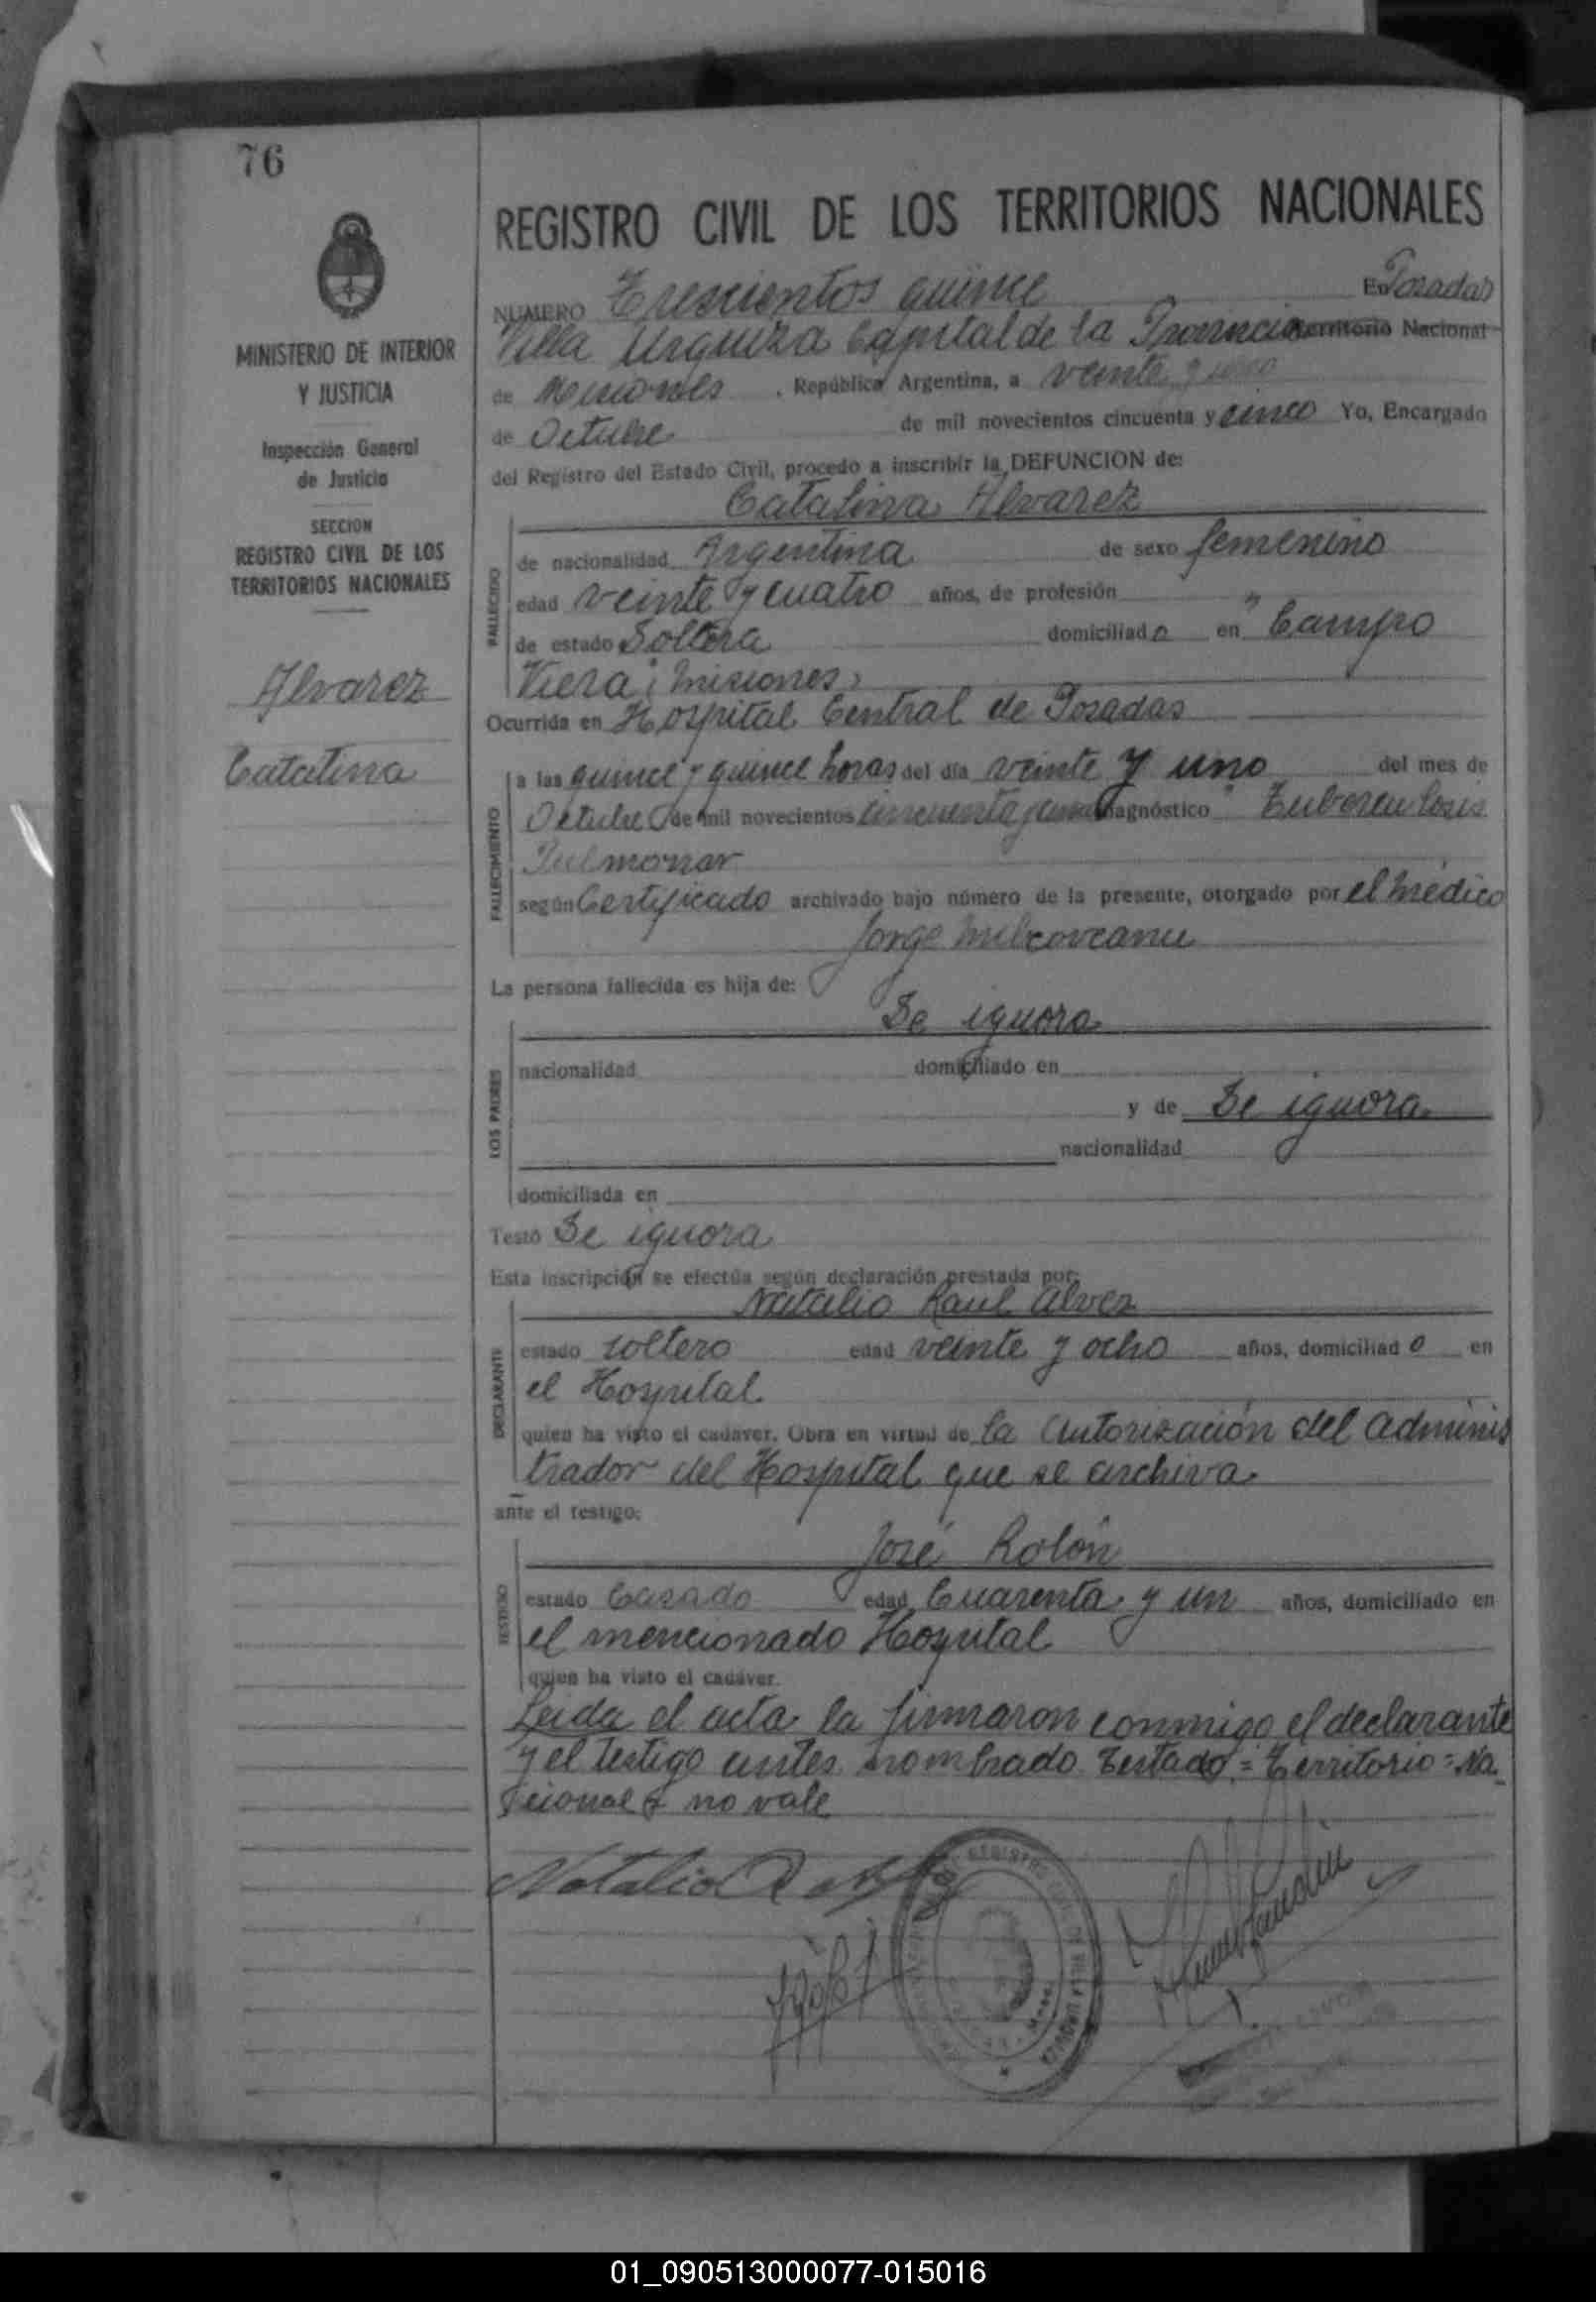 76
REGISTRO CIVIL DE LOS TERRITORIOS NACIONALES
MINISTERIO DE INTERIOR
Y JUSTICIA
Inspección General
de Justicia
SECCION
REGISTRO CIVIL DE LOS
TERRITORIOS NACIONALES
Alvarez
Catalina
NUMERO Trescientos quince En Posadas
Villa Urquiza Capital de la Provincia Territorio Nacional
de Misiones, República Argentina, a veinte y uno
de Octubre de mil novecientos cincuenta y cinco Yo, Encargado
del Registro del Estado Civil, procedo a inscribir la DEFUNCION de:
Catalina Alvarez
FALLECIDO
de nacionalidad Argentina de sexo femenino
edad veinte y cuatro años, de profesión
de estado Soltera domiciliada en "Campo
Viera", Misiones,
Ocurrida en Hospital Central de Posadas
FALLECIMIENTO
a las quince y quince horas del día veinte y uno del mes de
Octubre de mil novecientos cincuenta y cinco diagnóstico "Tuberculosis
Pulmonar
según Certificado archivado bajo número de la presente, otorgado por el médico
Jorge
La persona fallecida es hija de:
Se ignora
LOS PADRES
nacionalidad domiciliado en
y de Se ignora
nacionalidad
domiciliada en
Testó Se ignora
Esta inscripción se efectúa según declaración prestada por:
Natalio Raul Alvez
DECLARANTE
estado soltero edad veinte y ocho años, domiciliado en
el Hospital
quien ha visto el cadáver. Obra en virtud de la autorización del adminis
trador del Hospital que se archiva.
ante el testigo:
José Rolón
TESTIGO
estado Casado edad Cuarenta y un años, domiciliado en
el mencionado Hospital
quien ha visto el cadáver.
Leida el acta la firmaron conmigo el declarante
y el testigo antes nombrado. Testado = Territorio = Na
cional = no vale
Natalio R
REGISTRO CIVIL DE VILLA URQUIZA
01_090513000077-015016